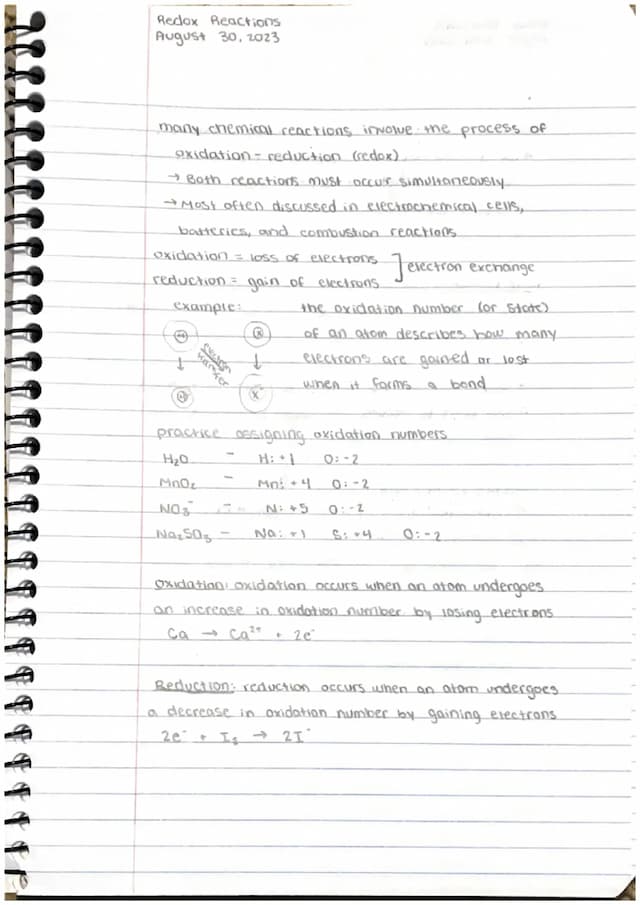 Redox Reactions
August 30, 2023
many chemical reactions involve the process of
oxidation - reduction (redox)
→ Both reactions must occur simultaneously
→ Most often discussed in electrochemical cells,
batteries, and combustion reactions
oxidation = loss of electrons
reduction = gain of electrons
] electron exchange
example:
electron
transfer
the oxidation number (or state)
of an atom describes how many
electrons are gained or lost
when it forms a bond
practice assigning oxidation numbers
H₂O - H: +1 O: -2
MnO₂ - Mn: +4 O: -2
NO₃⁻ - N: +5 O: -2
Na₂SO₃ - Na: +1 S: +4 O: -2
Oxidation: oxidation occurs when an atom undergoes
an increase in oxidation number by losing electrons
Ca → Ca²⁺ + 2e⁻
Reduction: reduction occurs when an atom undergoes
a decrease in oxidation number by gaining electrons
2e⁻ + I → 2I⁻